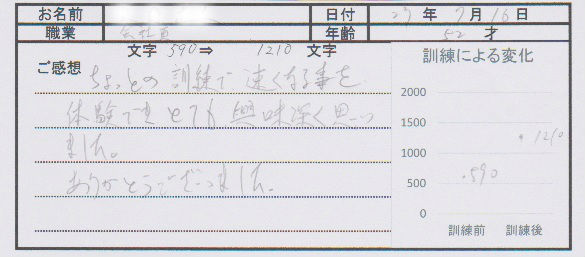 お名前 日付 27年 7月 16日
職業 会社員 年齢 52 才
文字 590 ⇒ 1210 文字
ご感想
ちょっとの訓練で速くなる事を
体験できとても興味深く思い
ました。
ありがとうございました。
訓練による変化
2000
1500
1000
500
0
・1210
・590
訓練前 訓練後